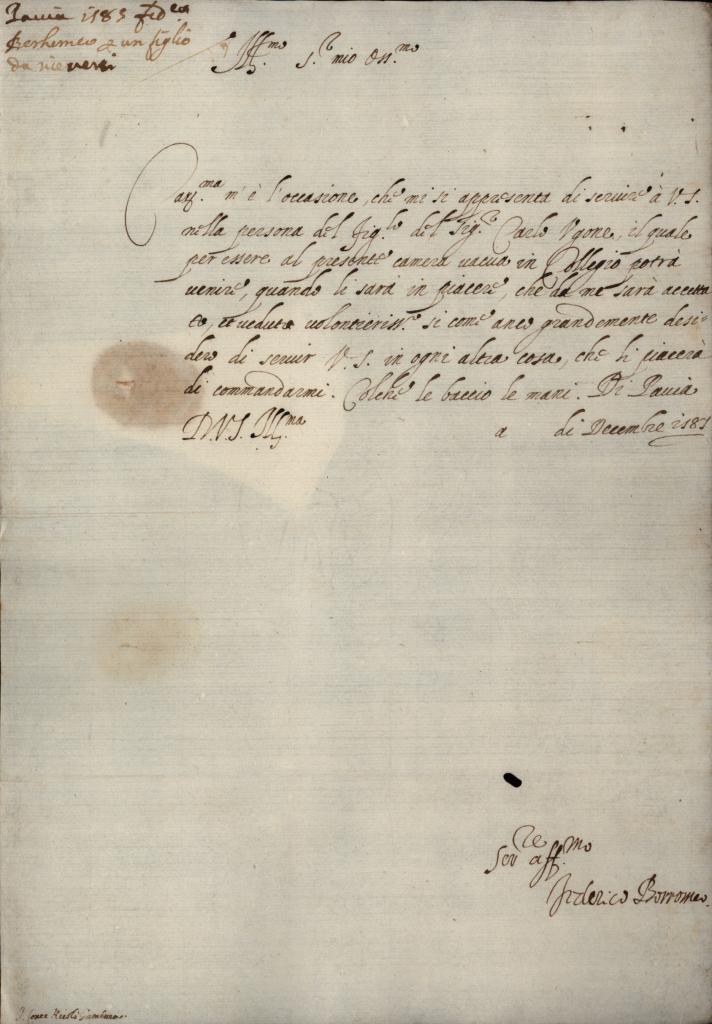 Pavia 1585 Fed.co
un figlio
da
Ill.mo S.r mio Oss.mo
Car.ma m'è l'occasione, che mi si appresenta di servire à V.S.
nella persona del fig.lo del Sig.r Carlo Ugone, il quale
per essere al presente camera vacua in Collegio potrà
venire, quando li sarà in piacere, che da me sarà accetta
to, et veduto volontieriss.o si come anco grandemente desi
dero di servir V.S. in ogni altra cosa, che li piacerà
di commandarmi. Colche le baccio le mani. Di Pavia
a di Decembre 1585
D.V.S. Ill.ma
Ser.re aff.mo
Federico Borromeo.